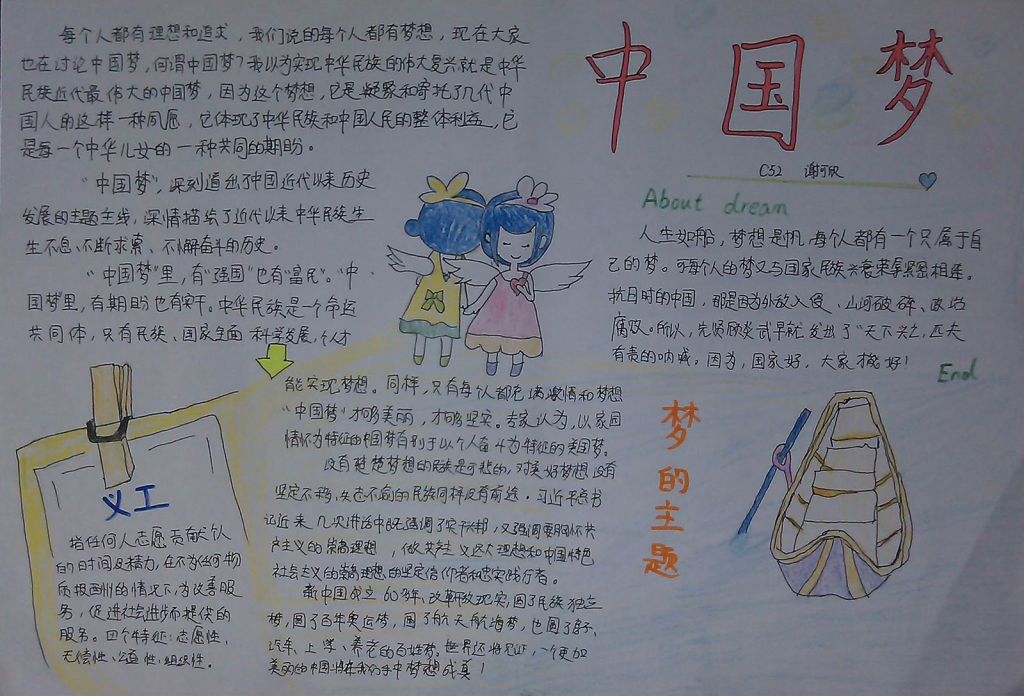 中国梦
C52 谢可欣
每个人都有理想和追求，我们说的每个人都有梦想，现在大家
也在讨论中国梦，何谓中国梦？我以为实现中华民族的伟大复兴就是中华
民族近代最伟大的中国梦，因为这个梦想，它是凝聚和寄托了几代中
国人的这样一种夙愿，它体现了中华民族和中国人民的整体利益，它
是每一个中华儿女的一种共同的期盼。
“中国梦”，深刻道出了中国近代以来历史
发展的主题主线，深情描绘了近代以来中华民族生
生不息、不断求索、不懈奋斗的历史。
“中国梦”里，有“强国”也有“富民”。“中
国梦里，有期盼也有实干。中华民族是一个命运
共同体，只有民族、国家全面科学发展，个人才
能实现梦想。同样，只有每个人都充满激情和梦想
“中国梦”才够美丽，才够坚实。专家认为，以家国
情怀为特征的中国梦有别于以个人奋斗为特征的美国梦。
没有梦想的民族是可悲的，对美好梦想没有
坚定不移、矢志不渝的民族同样没有前途。习近平总书
记近来几次讲话中既强调了实干兴邦，又强调要胸怀共
产主义的崇高理想，做共产主义远大理想和中国特色
社会主义的崇高理想的坚定信仰者和忠实践行者。
新中国成立60多年，改革开放现实，圆了民族独立
梦，圆了百年奥运梦，圆了航天航海梦，也圆了房子、
汽车、上学、养老的百姓梦。世界还将见证，一个更加
美丽的中国将在我们手中梦想成真！
About dream
人生如船，梦想是帆，每个人都有一个只属于自
己的梦。可每个人的梦又与国家民族兴衰荣辱紧紧相连。
抗日时的中国，那是因为外敌入侵、山河破碎、政治
腐败。所以，先贤顾炎武早就发出了“天下兴亡，匹夫
有责的呐喊。因为，国家好，大家才能好！
End
梦的主题
义工
指任何人志愿贡献个人
的时间及精力，在不为任何物
质报酬的情况下，为改善服
务，促进社会进步而提供的
服务。四个特征：志愿性、
无偿性、公益性、组织性。